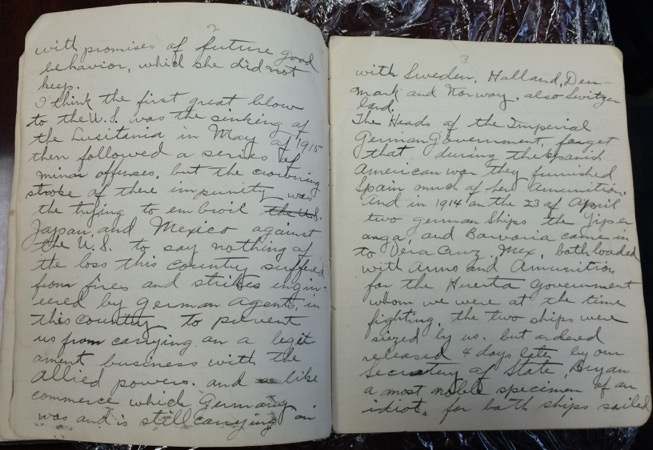 2
with promises of future good
behavior, which she did not
keep.
I think the first great blow
to the U.S. was the sinking of
the Lusitania in May of 1915
then followed a series of
minor offuses. but the crowning
stroke of there impunity was
the trying to embroil the U.S.
Japan, and Mexico against
the U.S. to say nothing of
the loss this country suffered
from fires and strikes engin-
eered by German agents, in
this country to prevent
us from carrying on a legit
ament business with the
Allied powers. and like
commerce which Germany
was and is still carrying on
3
with Sweden, Holland, Den-
mark and Norway. also Switzer
land.
The Heads of the Imperial
German Government, forget
that during the Spanish
American war they furnished
Spain much of her Amunition.
And in 1914 on the 23 of April
two german ships the Yipser
anga, and Bavaria came in
to Vera Cruz, Mex, both loaded
with Arms and Amunition
for the Huerta Government
whom we were at the time
fighting. the two ships were
siezed by us. but ordered
released 4 days later by our
Secretary of State, Bryan
a most noble specimen of an
idiot. for both ships sailed